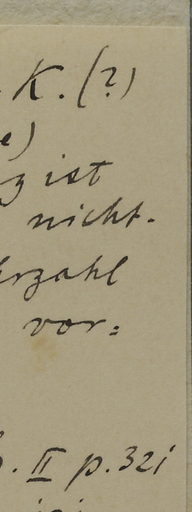 . K. (?)
e)
z ist
nicht.
hrzahl
vor=
. II p. 321